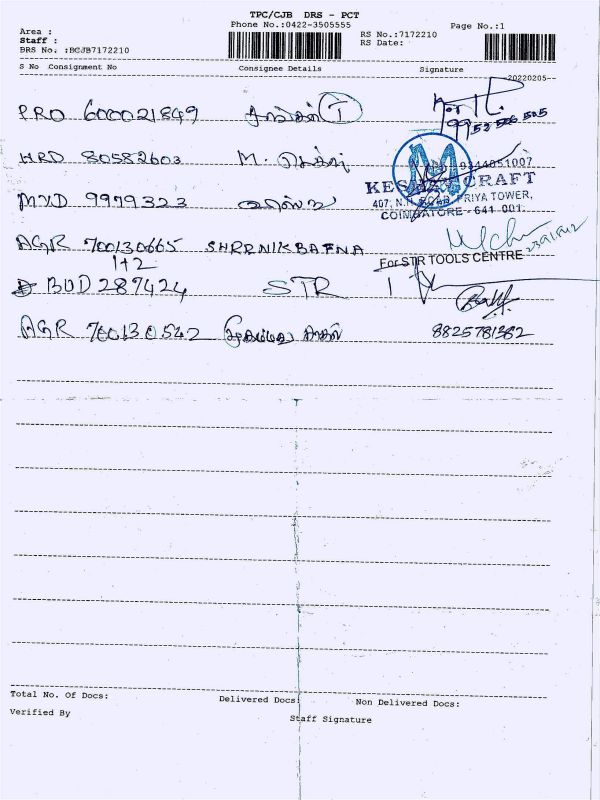 TPC/CJB DRS - PCT
Phone No.:0422-3505555
Page No.:1
Area :
Staff :
DRS No. :BCJB7172210
RS No.:7172210
RS Date:
S No Consignment No Consignee Details Signature
20220205
PRO 600021849
I
9952506505
HRD 80582603 M.
9344051007
KES CRAFT
407, N.H. ROAD, PRIYA TOWER,
COIMBATORE - 641 001.
MXD 9979323
AGR 700130665 SHRRNIKBAFNA
1+2
For STR TOOLS CENTRE
BUD 287424 STR
AGR 700130542
8825781382
Total No. Of Docs: Delivered Docs: Non Delivered Docs:
Verified By Staff Signature